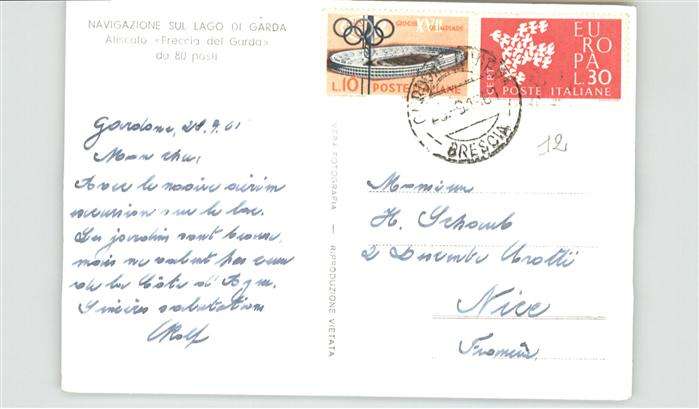 NAVIGAZIONE SUL LAGO DI GARDA
Aliscafo «Freccia del Garda»
da 80 posti
Gardone, 28.9.61
Mon cher,
Avec le navire aérien
excursion sur le lac.
Les jardins sont beaux,
mais ne valent pas ceux
de la Côte d'Azur.
Sincères salutations
Rolf
VERA FOTOGRAFIA — RIPRODUZIONE VIETATA
GIOCHI XVII OLIMPIADE
L.10 POSTE ITALIANE
EUROPA
CEPT
L.30
POSTE ITALIANE
GARDONE
BRESCIA
12
Monsieur
H. Schaub
2 Descente Crotti
Nice
Francia